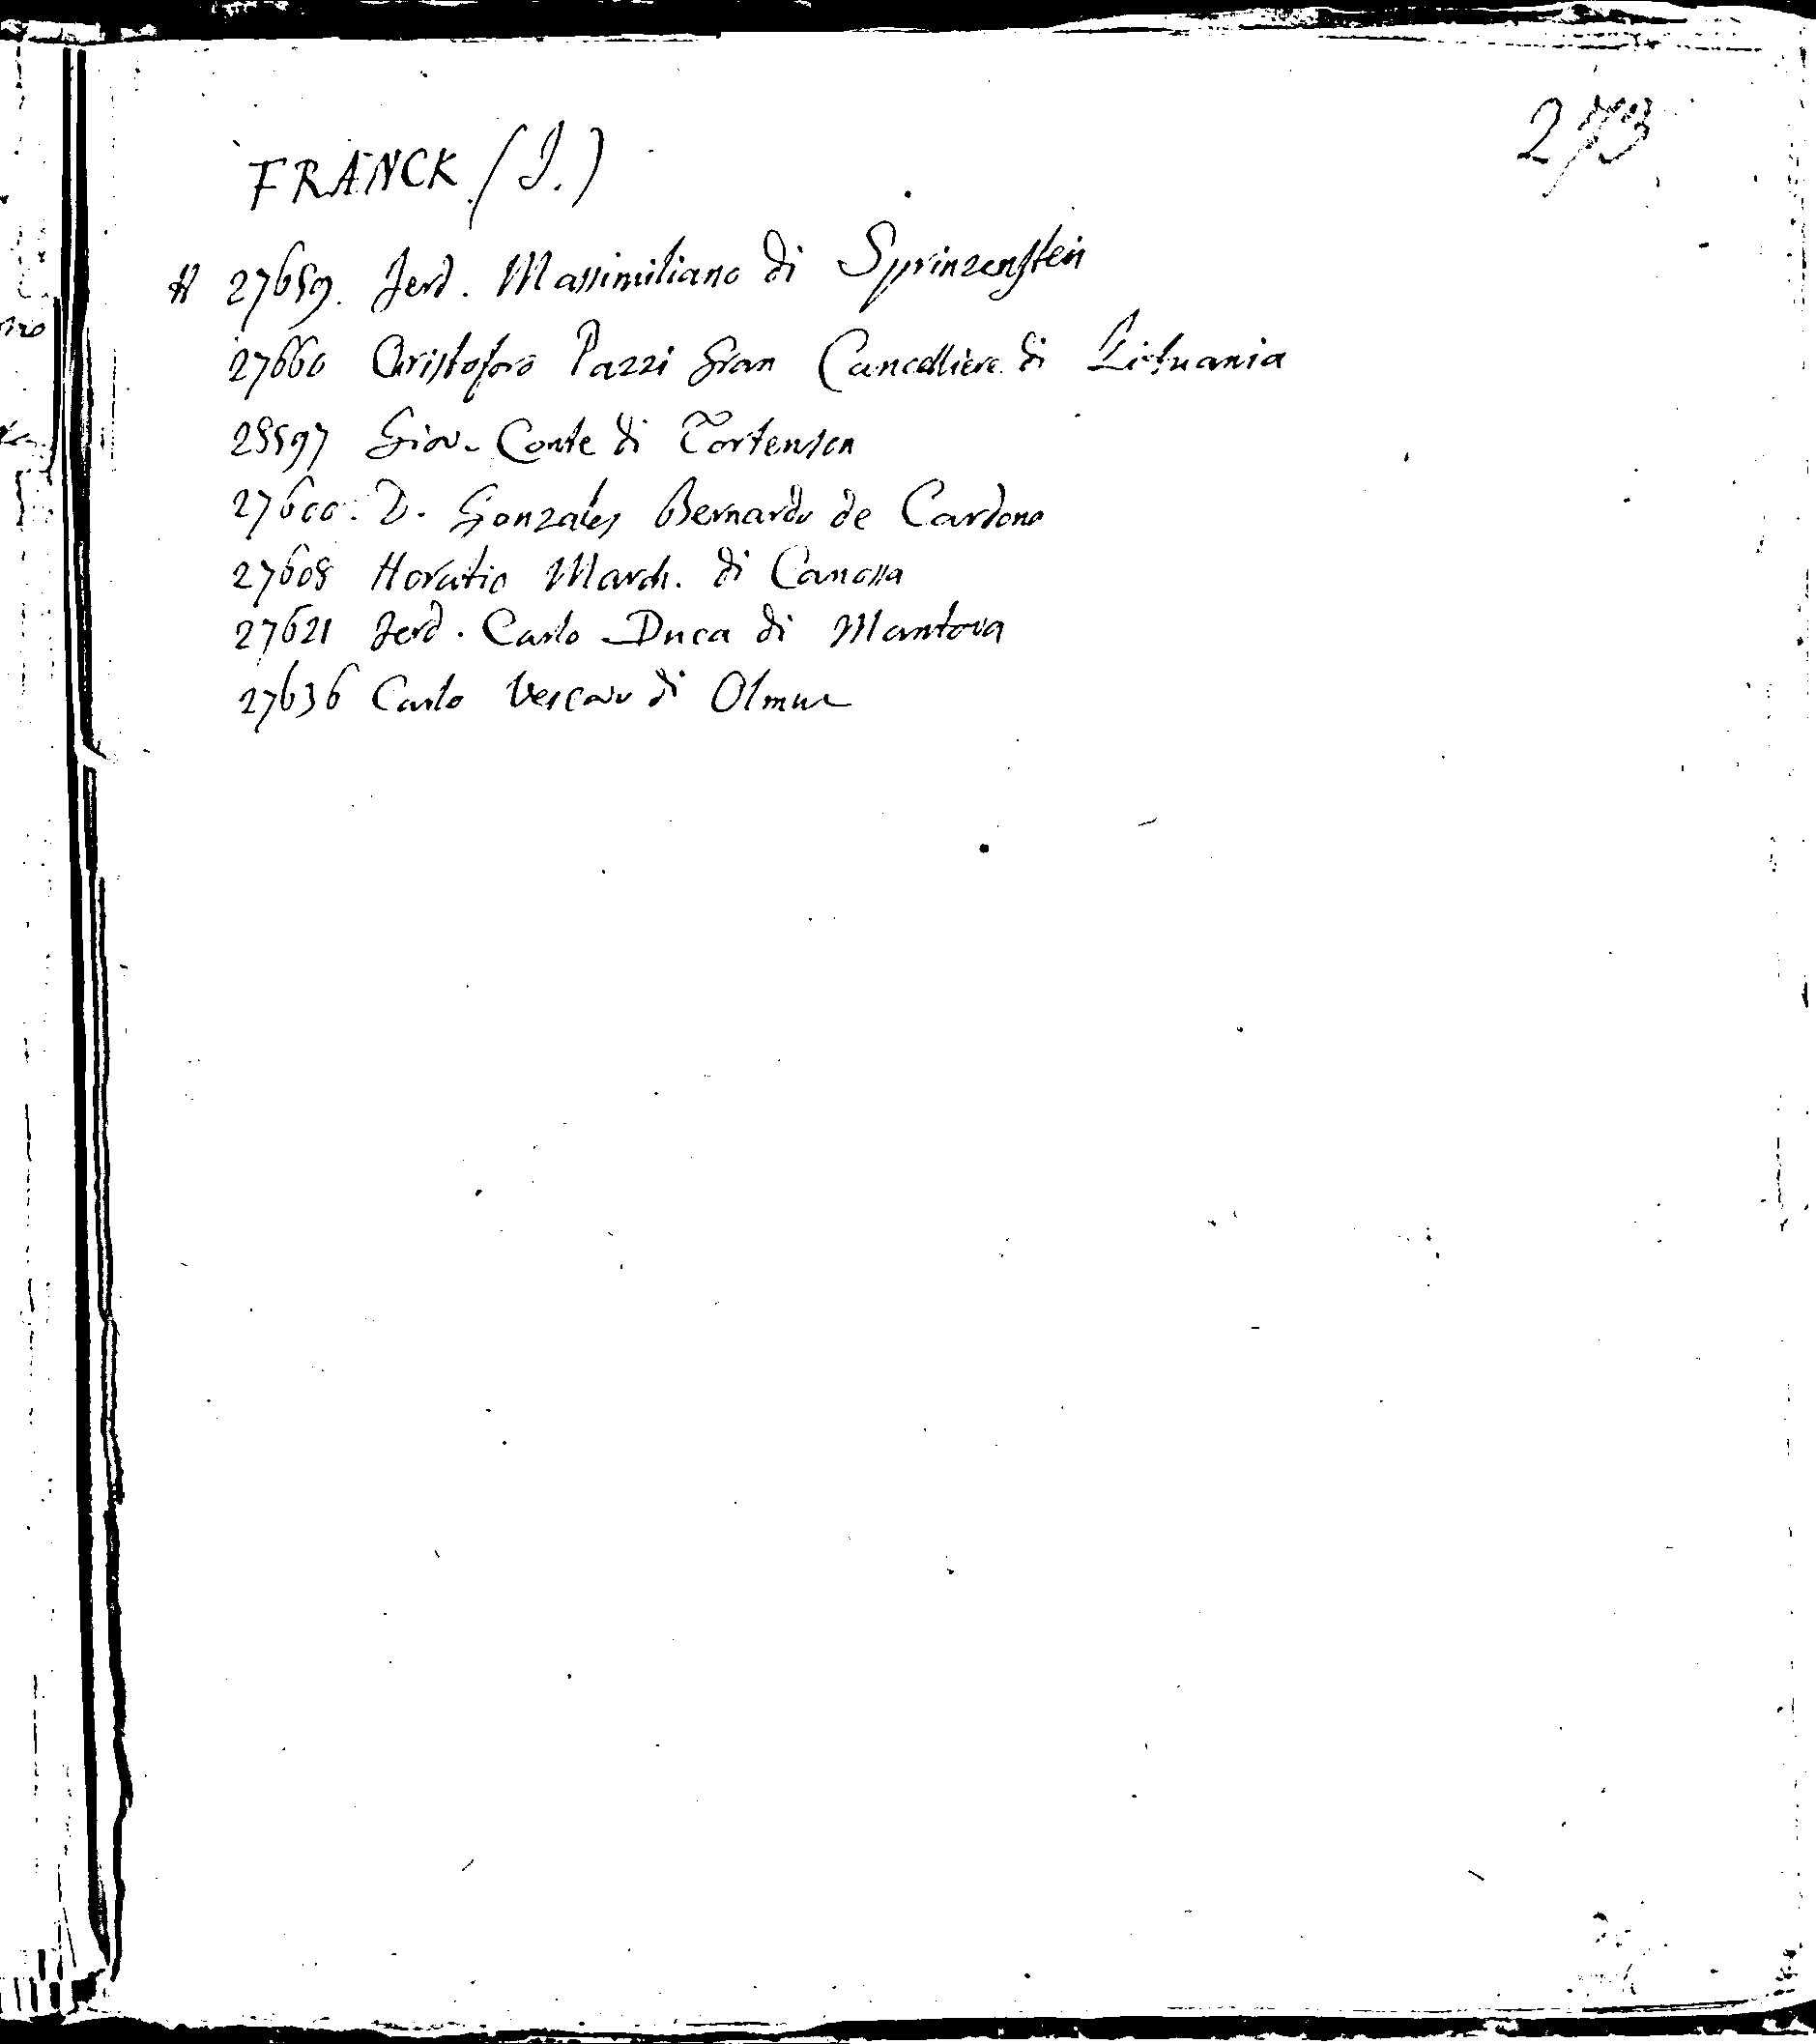 273
FRANCK (J.)
H 27659. Ferd. Massimiliano di Sprinzenstein
27660 Christoforo Pazzi Gran Cancelliere di Lituania
25597 Giov. Conte di Tortenson
27600. D. Gonzales Bernardo de Cardona
27605 Horatio March. di Canossa
27621 Ferd. Carlo Duca di Mantova
27636 Carlo Vescovo di Olmuc